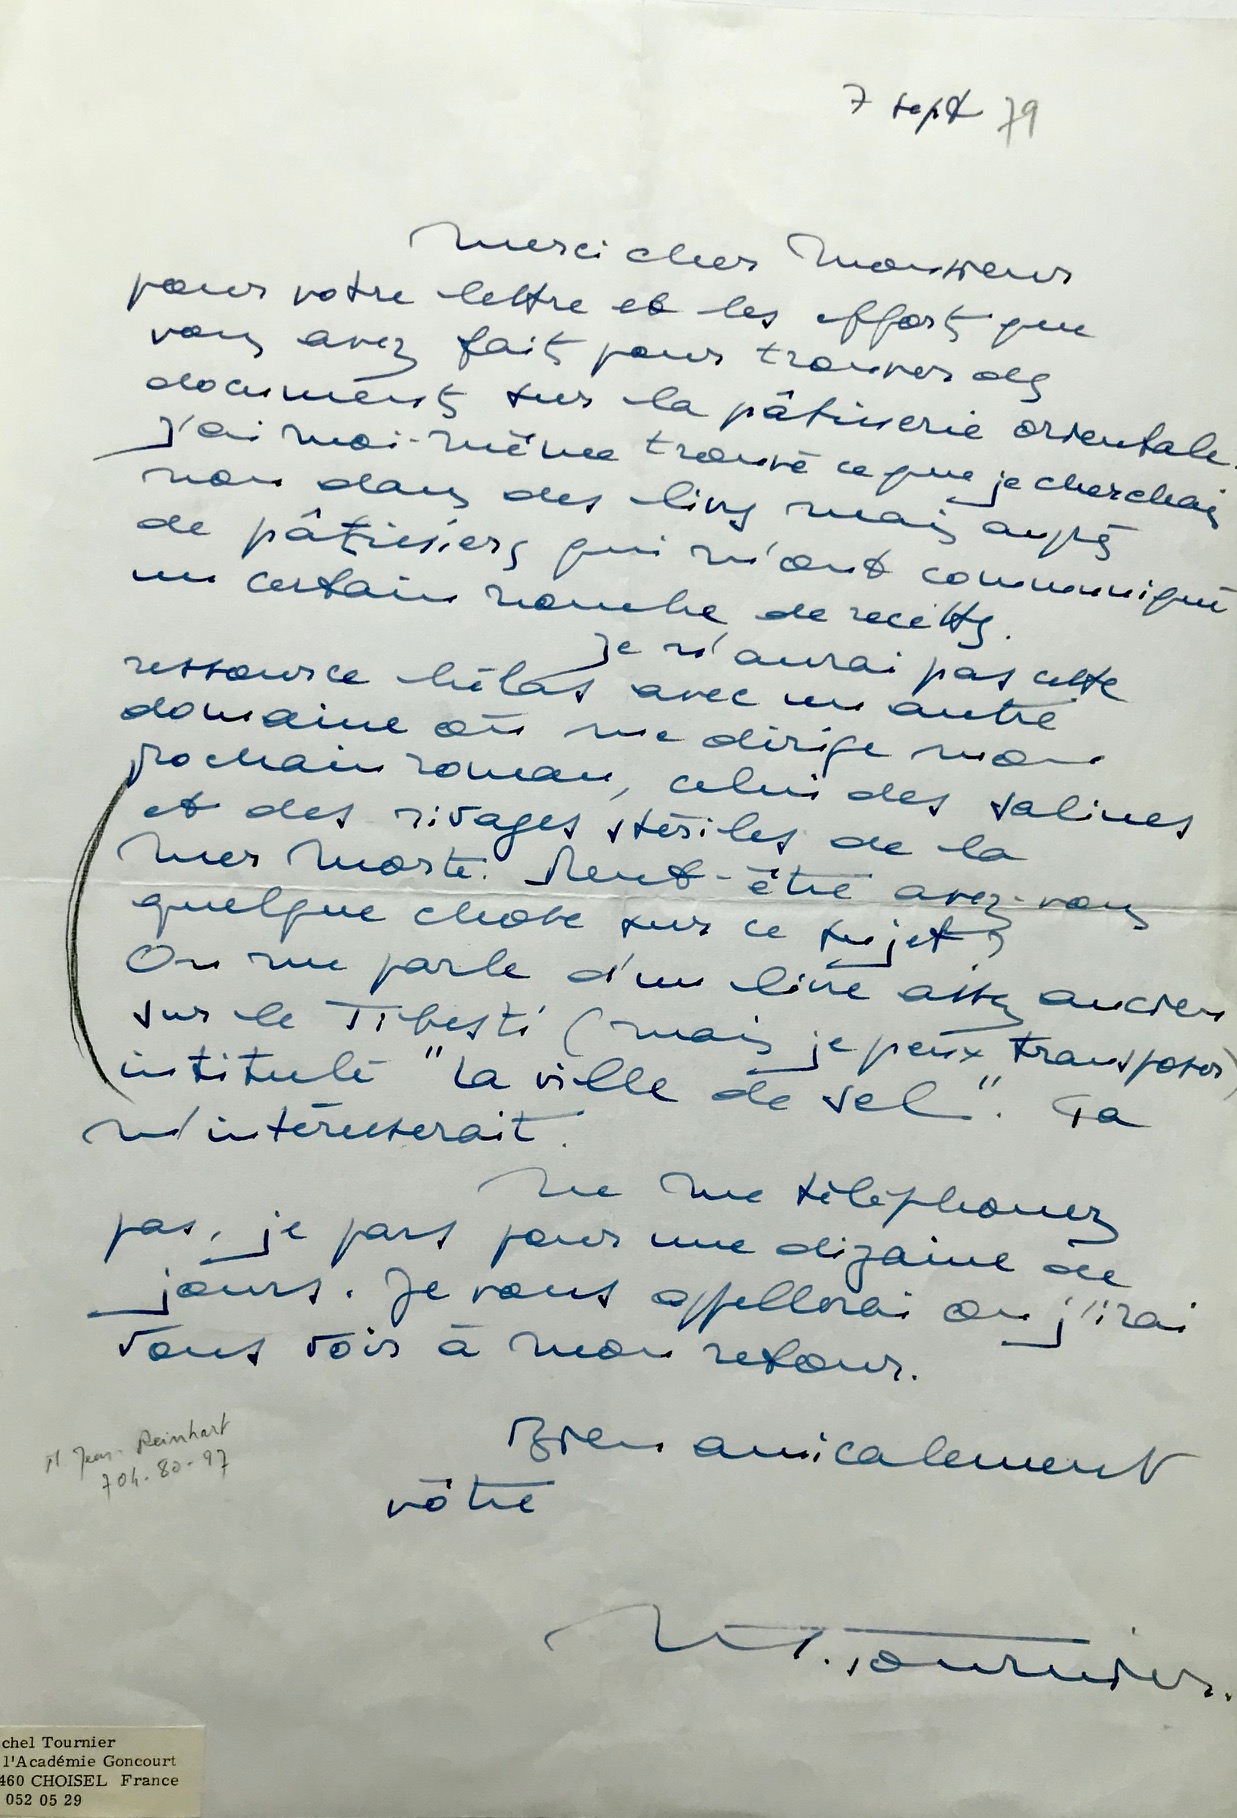 7 sept 79
Merci cher Monsieur
pour votre lettre et les efforts que
vous avez faits pour trouver des
documents sur la pâtisserie orientale.
J'ai moi-même trouvé ce que je cherchais
non dans des livres mais auprès
de pâtissiers qui m'ont communiqué
un certain nombre de recettes.
Je n'aurai pas cette
ressource hélas avec un autre
domaine où me dirige mon
prochain roman, celui des salines
et des rivages stériles de la
Mer Morte. Peut-être avez-vous
quelque chose sur ce sujet ?
On me parle d'un livre assez ancien
sur le Tibesti (mais je peux transposer)
intitulé "La ville de sel". Ça
m'intéresserait.
Ne me téléphonez
pas, je pars pour une dizaine de
jours. Je vous appellerai ou j'irai
vous voir à mon retour.
Bien amicalement
vôtre
M. Tournier.
M Jean Reinhart
704-80-97
chel Tournier
l'Académie Goncourt
460 CHOISEL France
052 05 29